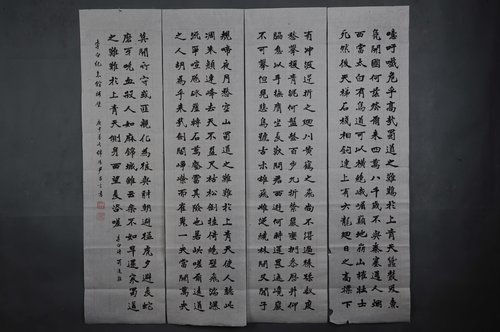 噫吁嚱危乎高哉蜀道之難難於上青天蠶叢及魚
鳧開國何茫然爾來四萬八千歲不與秦塞通人烟
西當太白有鳥道可以橫絕峨嵋巔地崩山摧壯士
死然後天梯石棧相鉤連上有六龍迴日之高標下
有沖波逆折之迴川黃鶴之飛尚不得過猿猱欲度
愁攀援青泥何盤盤百步九折縈巖巒捫參歷井仰
脇息以手撫膺坐長歎問君西遊何時還畏途巉巖
不可攀但見悲鳥號古木雄飛雌從繞林間又聞子
規啼夜月愁空山蜀道之難難於上青天使人聽此
凋朱顏連峰去天不盈尺枯松倒挂倚絕壁飛湍瀑
流爭喧豗砯崖轉石萬壑雷其險也若此嗟爾遠道
之人胡為乎來哉劍閣崢嶸而崔嵬一夫當關萬夫
莫開所守或匪親化為狼與豺朝避猛虎夕避長蛇
磨牙吮血殺人如麻錦城雖云樂不如早還家蜀道
之難難於上青天側身西望長咨嗟 李白詩蜀道難
李白紀念館補壁